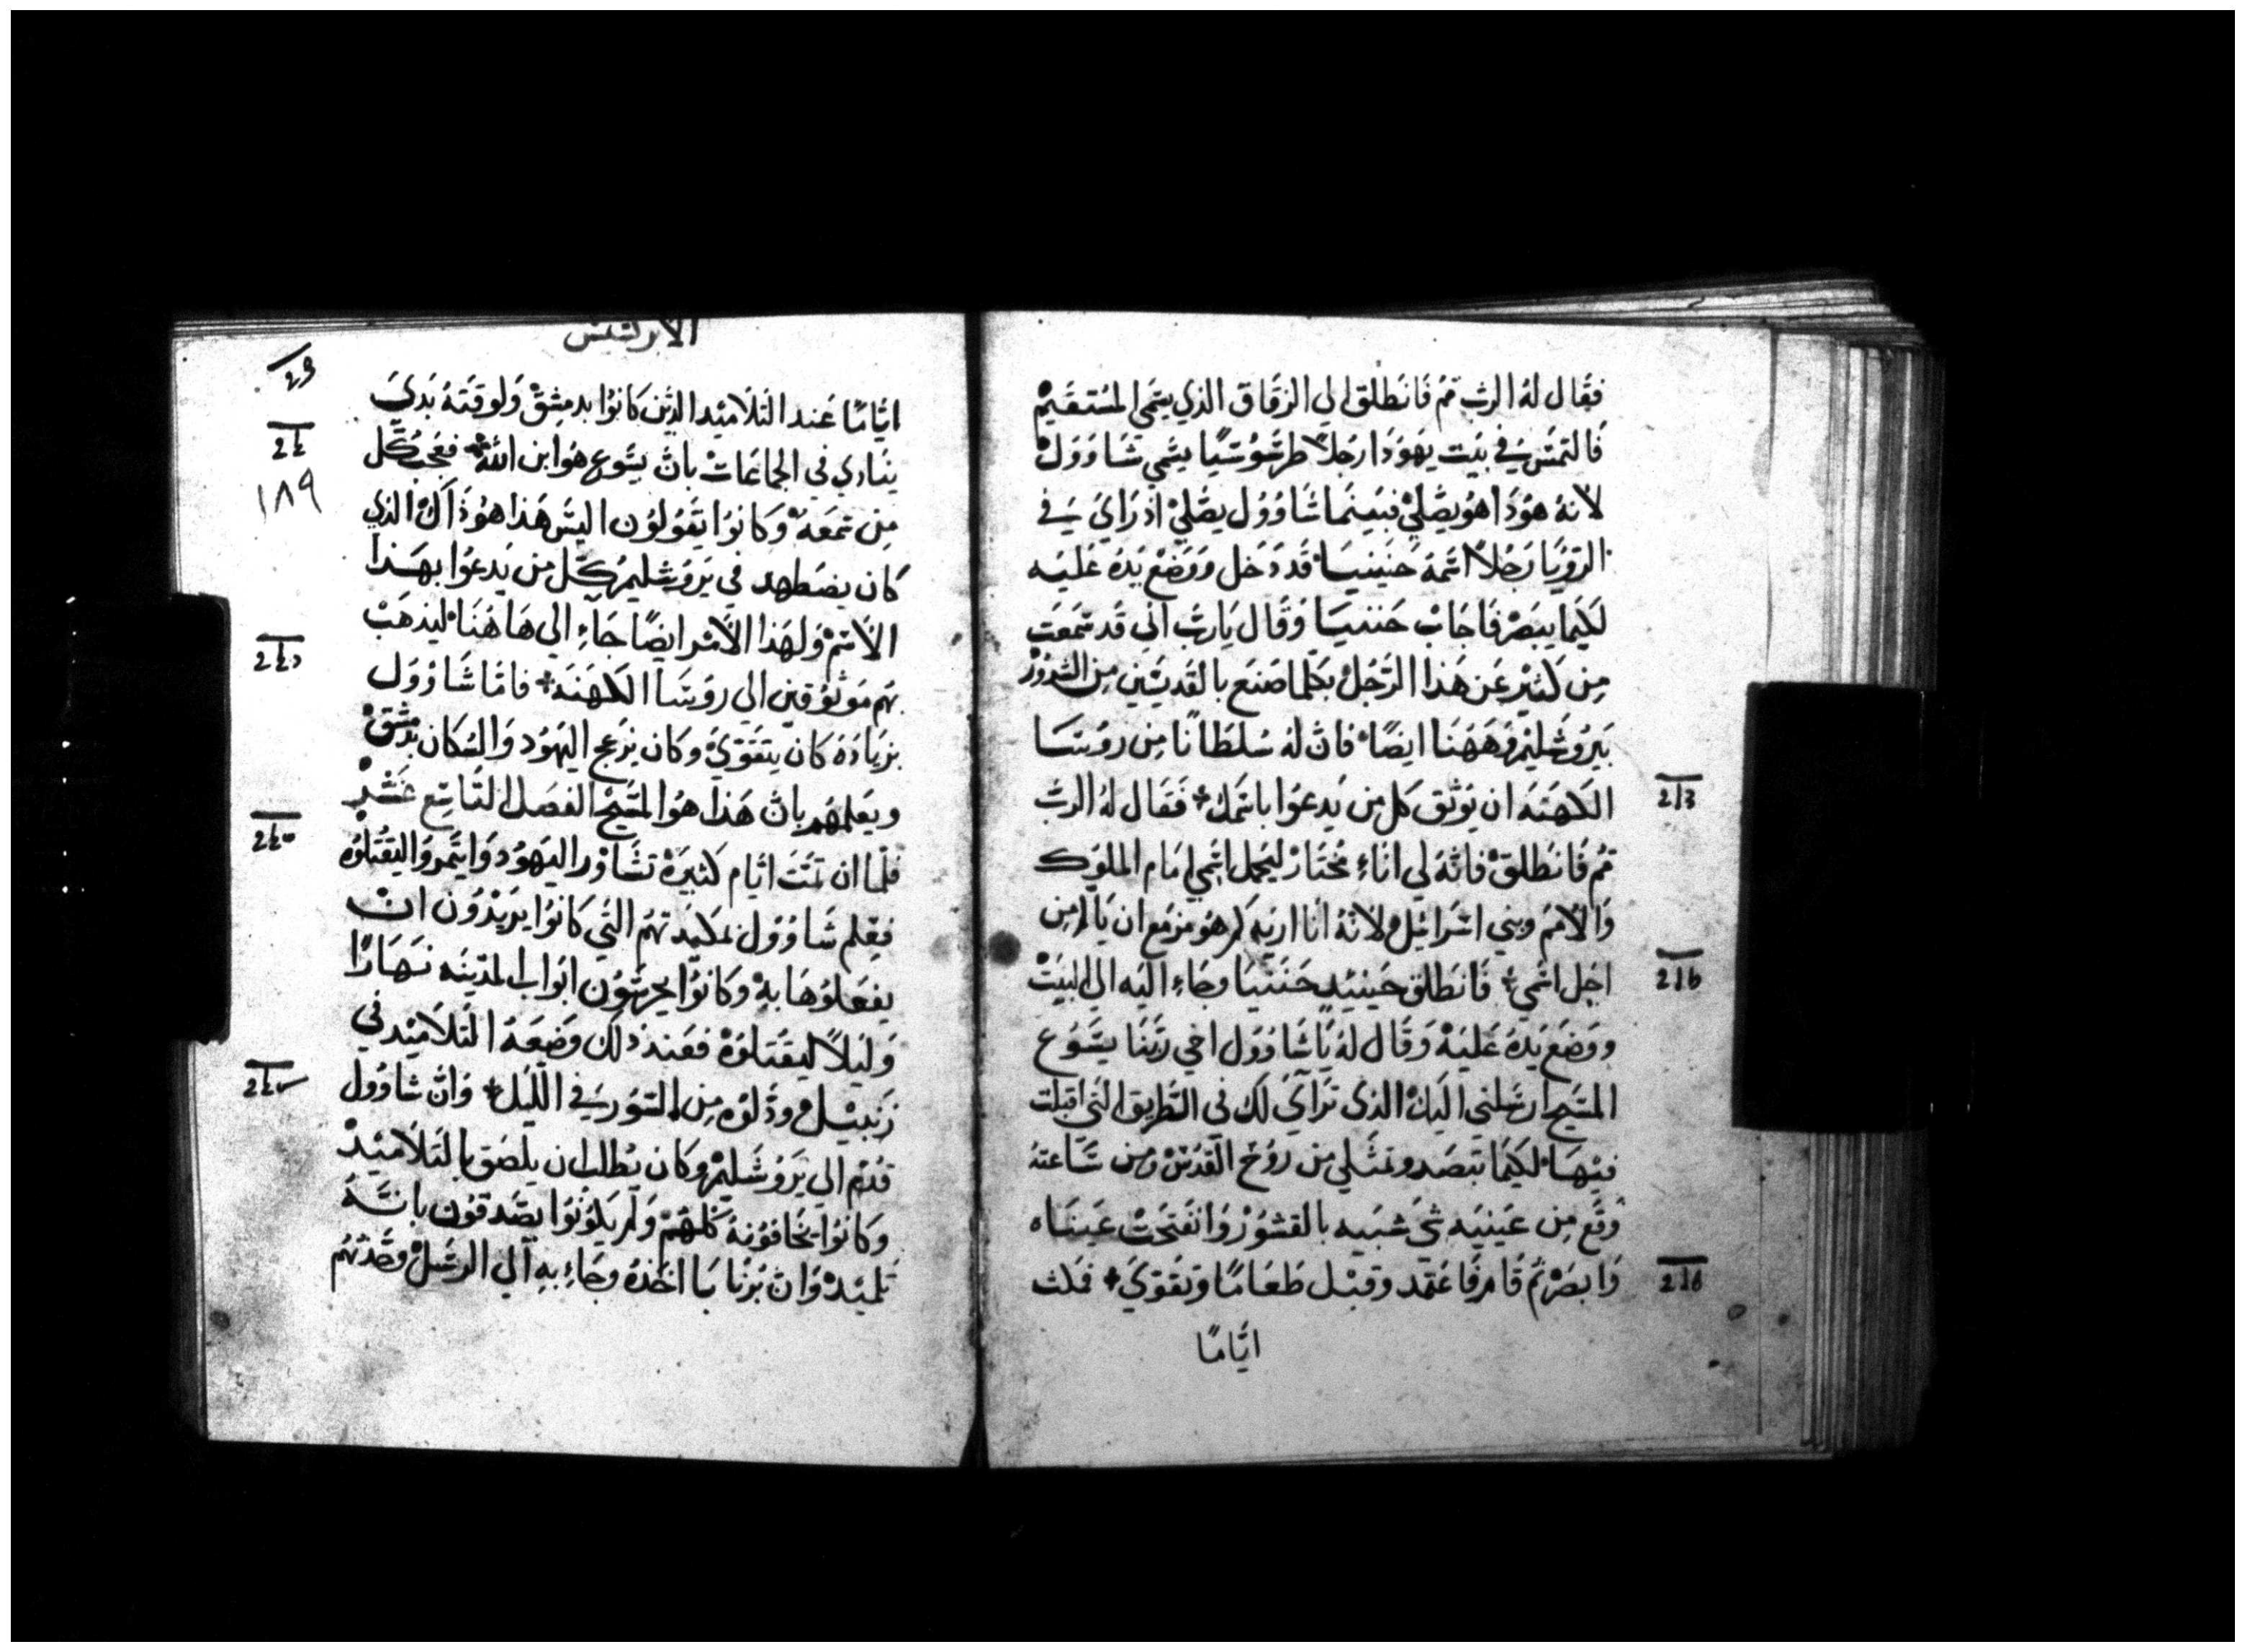 فقال له الرب قم فانطلق الي الزقاق الذي يسمي المستقيم
فالتمس في بيت يهودا رجلاً طرسوسيًا يسمي شاوول
لانه هوذا هو يصلي فبينما شاوول يصلي اذ راي في
الرويا رجلاً اسمه حنينيا قد دخل ووضع يده عليه
لكيما يبصر فاجاب حننيا وقال يارب اني قد سمعت
من كثير عن هذا الرجل بكلما صنع بالقديسين من الشرور
بيروشليم وههنا ايضًا فان له سلطانًا من روسا
الكهنه ان يوثق كل من يدعوا باسمك فقال له الرب
قم فانطلق فانه لي اناء مختار ليحمل اسمي امام الملوك
والامم وبني اسرائيل لانه انا اريه كم هو مزمع ان يالم من
اجل اسمي فانطلق حينيد حننيا وجاء اليه الي البيت
ووضع يده عليه وقال له يا شاوول اخي ربنا يسوع
المسيح ارسلني اليك الذي تراي لك في الطريق التي اقبلت
فيها لكيما تبصر وتمتلي من روح القدس ومن ساعته
وقع من عينيه شي شبيه بالقشور وانفتحت عيناه
وابصر ثم قام فاعتمد وقبل طعامًا وتقوي فمكث
ايامًا
الابركسيس
ايامًا عند التلاميد الذين كانوا بدمشق ولوقته بدي
ينادي في الجماعات بان يسوع هو ابن الله فعجب كل
من سمعه وكانوا يقولون اليس هذا هو ذاك الذي
كان يضطهد في يروشليم كل من يدعوا بهذا
الاسم ولهذا الامر ايضًا جاء الي هاهنا ليذهب
بهم موثوقين الي روسا الكهنه فاما شاوول
بزياده كان يتقوي وكان يزعج اليهود والسكان بدمشق
ويعلمهم بان هذا هو المسيح الفصل التاسع عشر
فلما ان تمت ايام كثيرة تشاور اليهود وايتمروا ليقتلوه
فعلم شاوول بمكيدتهم التي كانوا يريدون ان
يفعلوها به وكانوا يحرسون ابواب المدينه نهارًا
وليلاً ليقتلوه فعند ذلك وضعه التلاميد في
زنبيل ودلوه من السور في الليل وان شاوول
قدم الي يروشليم وكان يطلب ان يلصق بالتلاميد
وكانوا يخافونه كلهم ولم يكونوا يصدقون بانه
تلميد وان برنابا اخذه وجاء به الي الرسل وحدثهم
١٨٩